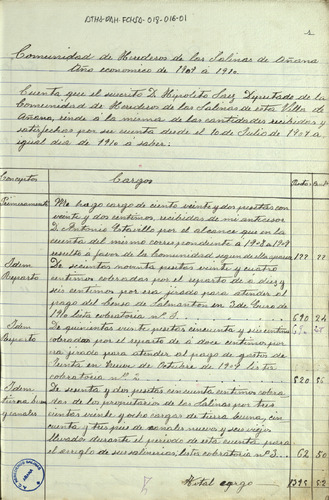 ATHA-DAH-FCHSA-018-016-01
1
Comunidad de Herederos de las Salinas de Añana
Año economico de 1909 a 1910
Cuenta que el suscrito D. Hipolito Saez Diputado de la
Comunidad de Herederos de las Salinas de esta Villa de
Añana, rinde á la misma de las cantidades recibidas y
satisfechas por su cuenta desde el 10 de Julio de 1909 a
igual dia de 1910 á saber:
Conceptos Cargos
Primeramente Me hago cargo de ciento veinte y dos pesetas con
veinte y dos centimos, recibidas de mi antecesor
D. Antonio por el alcance que en la
cuenta del mismo correspondiente a 1908 a 1909
resultó a favor de la Comunidad segun 122 22
Idem De seiscientos noventa pesetas veinte y cuatro
Reparto centimos cobradas por el reparto de a diez y
seis centimos por era girado para atender al
pago del Censo de en 3 de Enero de
1910 lista cobratoria nº 690 24
Idem De quinientas veinte pesetas cincuenta y seis centimos
Reparto cobradas por el reparto de á doce centimos por
era girado para atender al pago de gastos de
Junta en de Octubre de 1909 lista
cobratoria nº 2 520 56
Idem De sesenta y dos pesetas cincuenta centimos cobra
tierra buena das de los propietarios de las Salinas por tres
cientas veinte y ocho cargas de tierra buena, cin
cuenta y tres pies de canales nuevos y seis viejos
llevados durante el periodo de esta cuenta para
el arreglo de sus salinas, lista cobratoria nº 3 62 50
Total cargo 1395 52